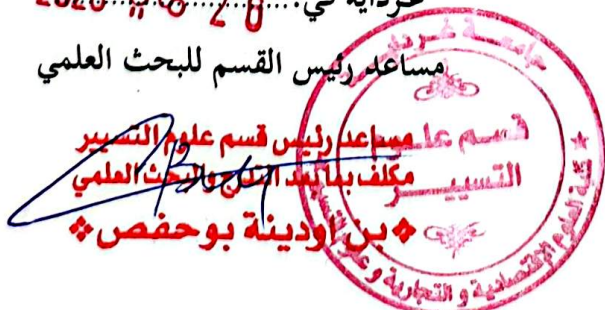 غرداية في:
مساعد رئيس القسم للبحث العلمي
مساعد رئيس قسم علوم التسيير
مكلف بما بعد التدرج والبحث العلمي
❖بن أودينة بوحفص❖
جامعة غرداية
قسم علوم
التسيير
كلية العلوم الاقتصادية و التجارية و علوم التسيير